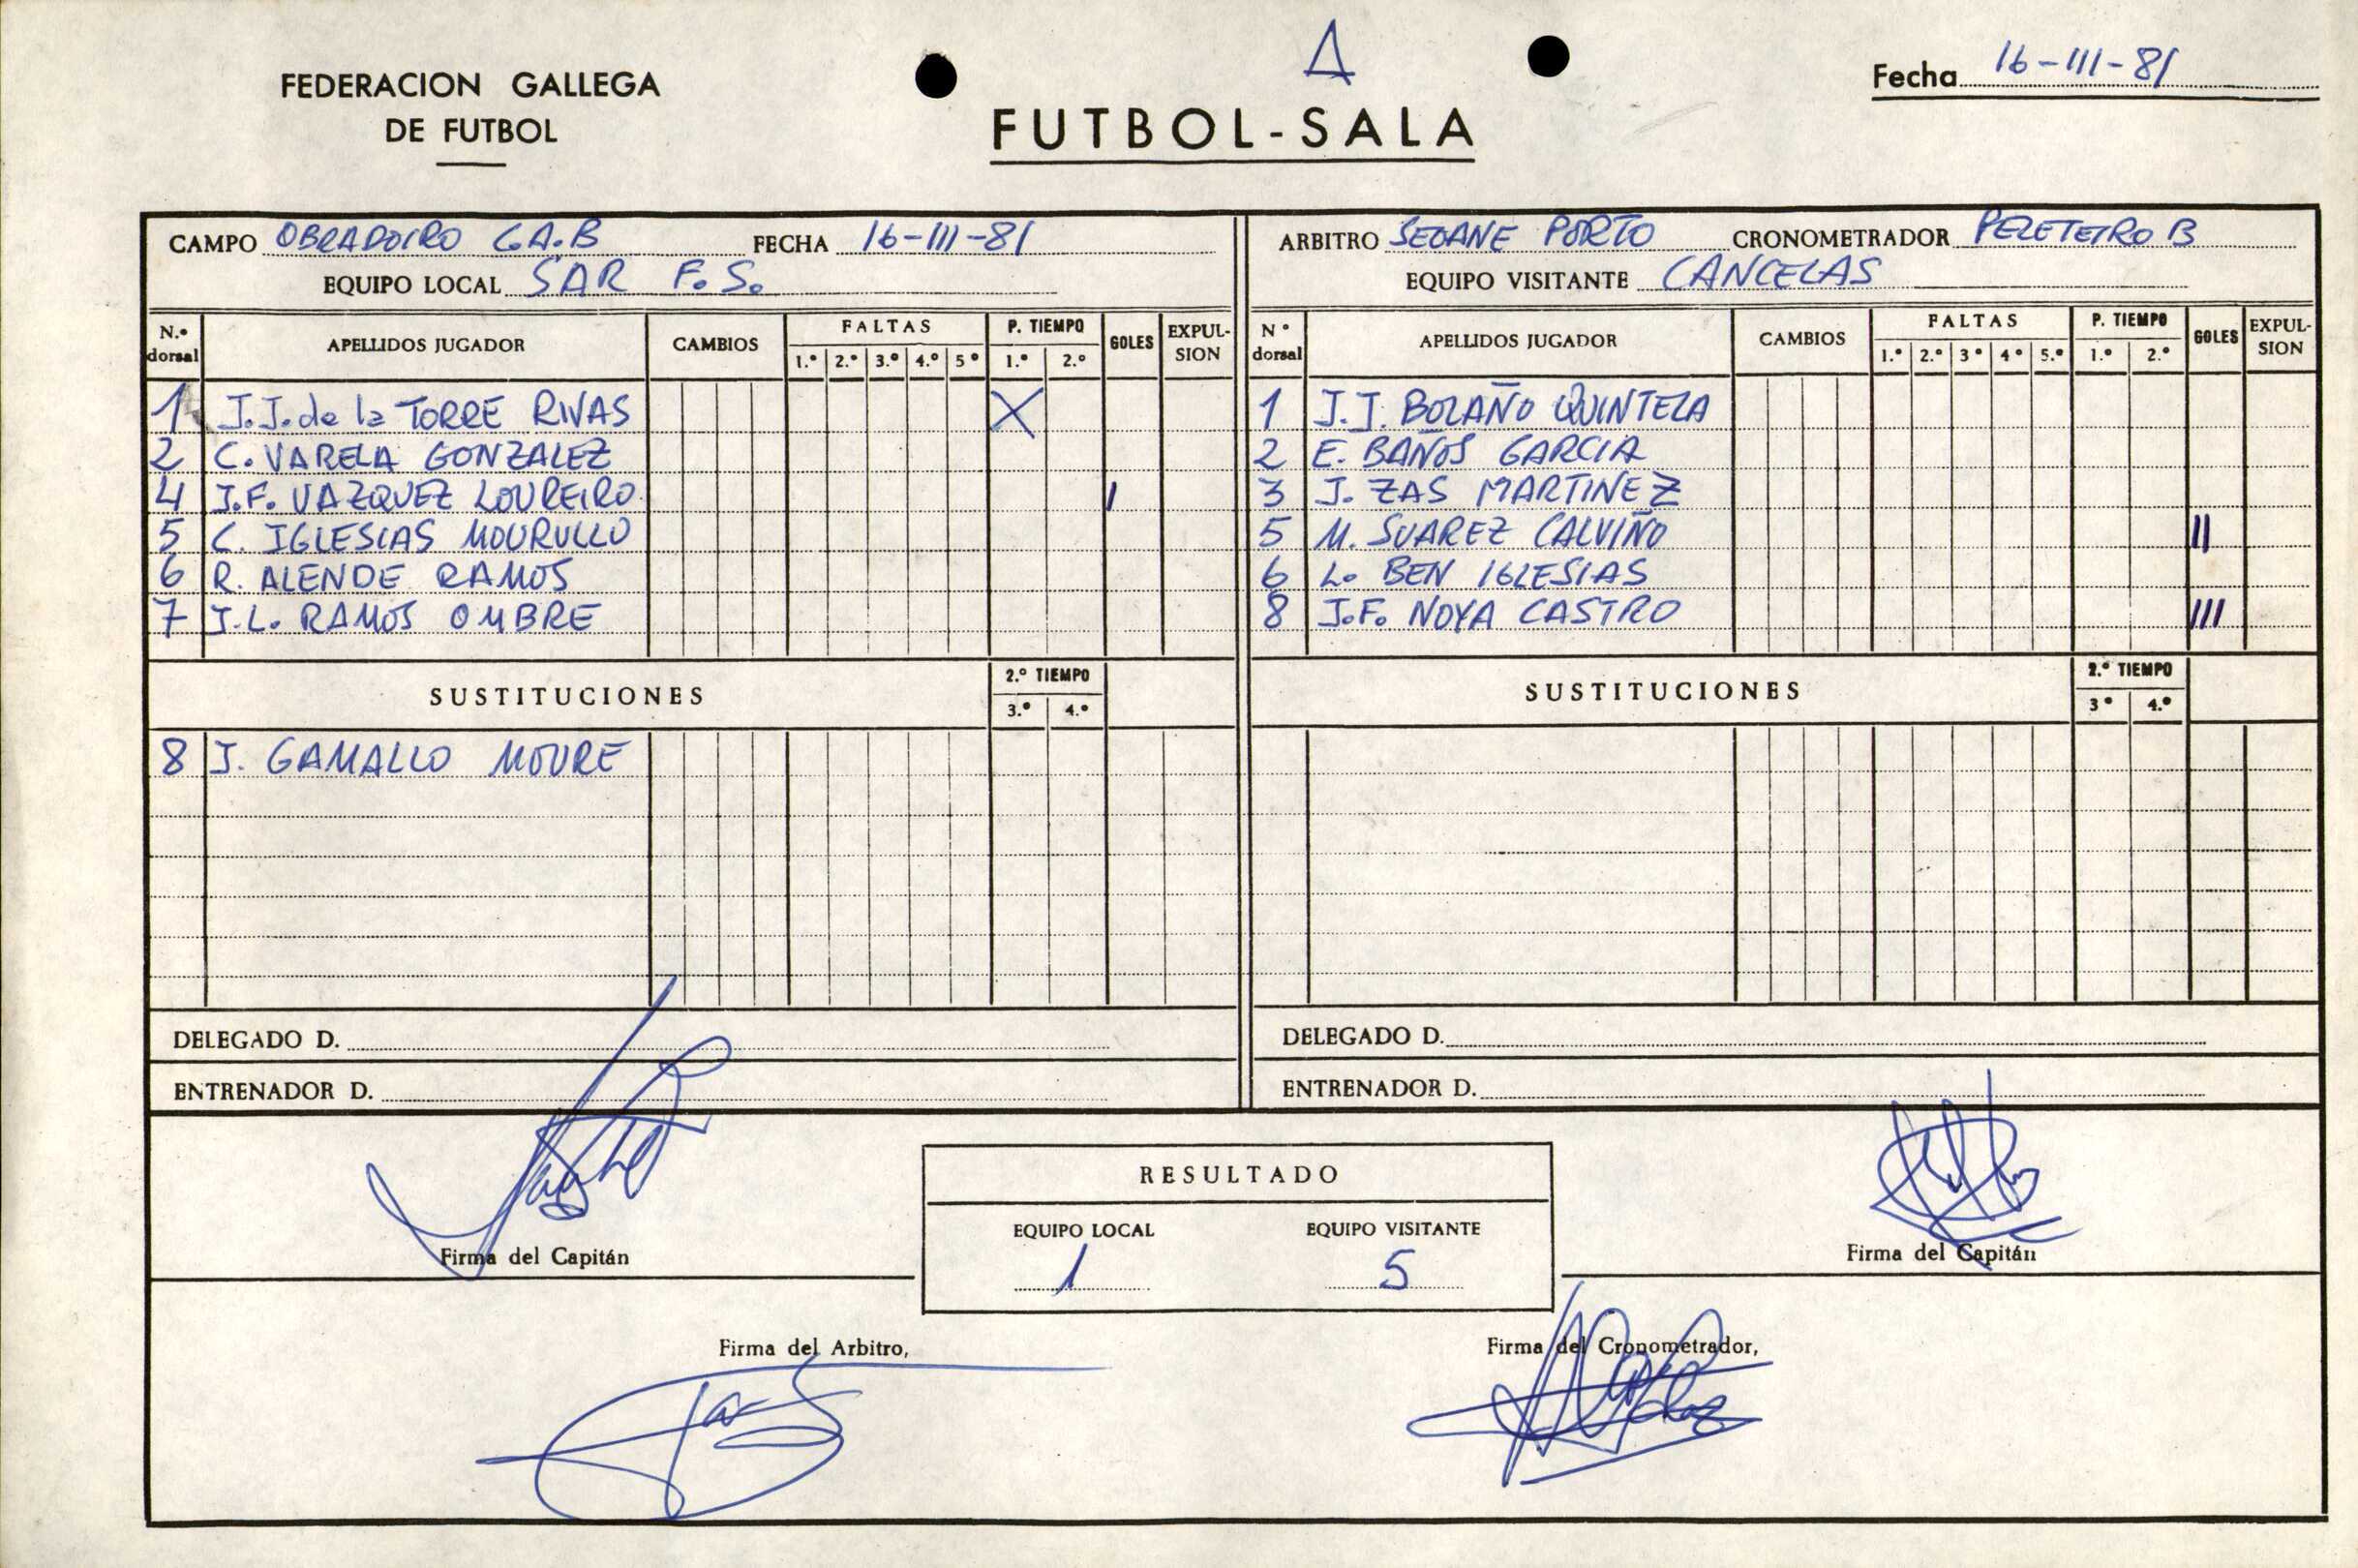 A
Fecha 16-III-81
FEDERACION GALLEGA
DE FUTBOL
FUTBOL-SALA
CAMPO OBRADOIRO C.A.B FECHA 16-III-81
EQUIPO LOCAL SAR F.S.
N.º dorsal APELLIDOS JUGADOR CAMBIOS FALTAS 1.º 2.º 3.º 4.º 5º P. TIEMPO 1.º 2.º GOLES EXPULSION
1 J.J. de la TORRE RIVAS X
2 C. VARELA GONZALEZ
4 J.F. VAZQUEZ LOUREIRO I
5 C. IGLESIAS MOURULLO
6 R. ALENDE RAMOS
7 J.L. RAMOS OMBRE
SUSTITUCIONES 2.º TIEMPO 3.º 4.º
8 J. GAMALLO MOURE
DELEGADO D.
ENTRENADOR D.
ARBITRO SEOANE PORTO CRONOMETRADOR PELETEIRO B
EQUIPO VISITANTE CANCELAS
Nº dorsal APELLIDOS JUGADOR CAMBIOS FALTAS 1.º 2.º 3º 4º 5.º P. TIEMPO 1.º 2.º GOLES EXPULSION
1 J.J. BOLAÑO QUINTELA
2 E. BAÑOS GARCIA
3 J. ZAS MARTINEZ
5 M. SUAREZ CALVIÑO II
6 L. BEN IGLESIAS
8 J.F. NOYA CASTRO III
SUSTITUCIONES 2.º TIEMPO 3º 4.º
DELEGADO D.
ENTRENADOR D.
Firma del Capitán
RESULTADO
EQUIPO LOCAL EQUIPO VISITANTE
1 5
Firma del Capitán
Firma del Arbitro,
Firma del Cronometrador,